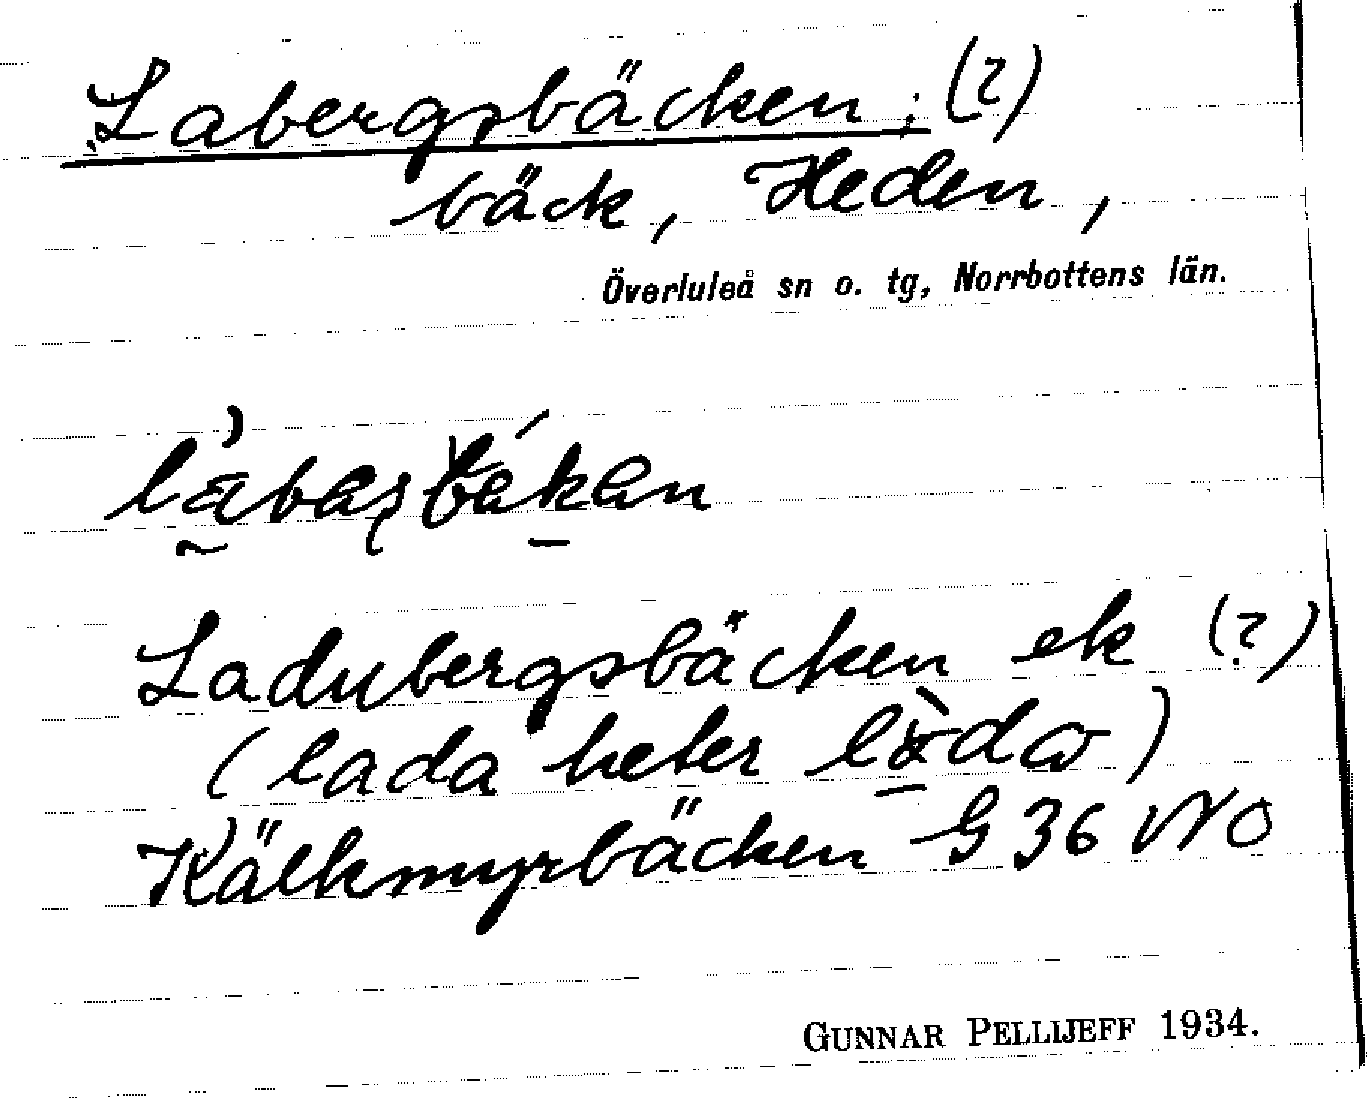 Labergsbäcken; (?)
bäck, Heden,
Överluleå sn o. tg, Norrbottens län.
Ladubergsbäcken ek (?)
(lada heter
Kälkmyrbäcken G 36 NO
GUNNAR PELLIJEFF 1934.